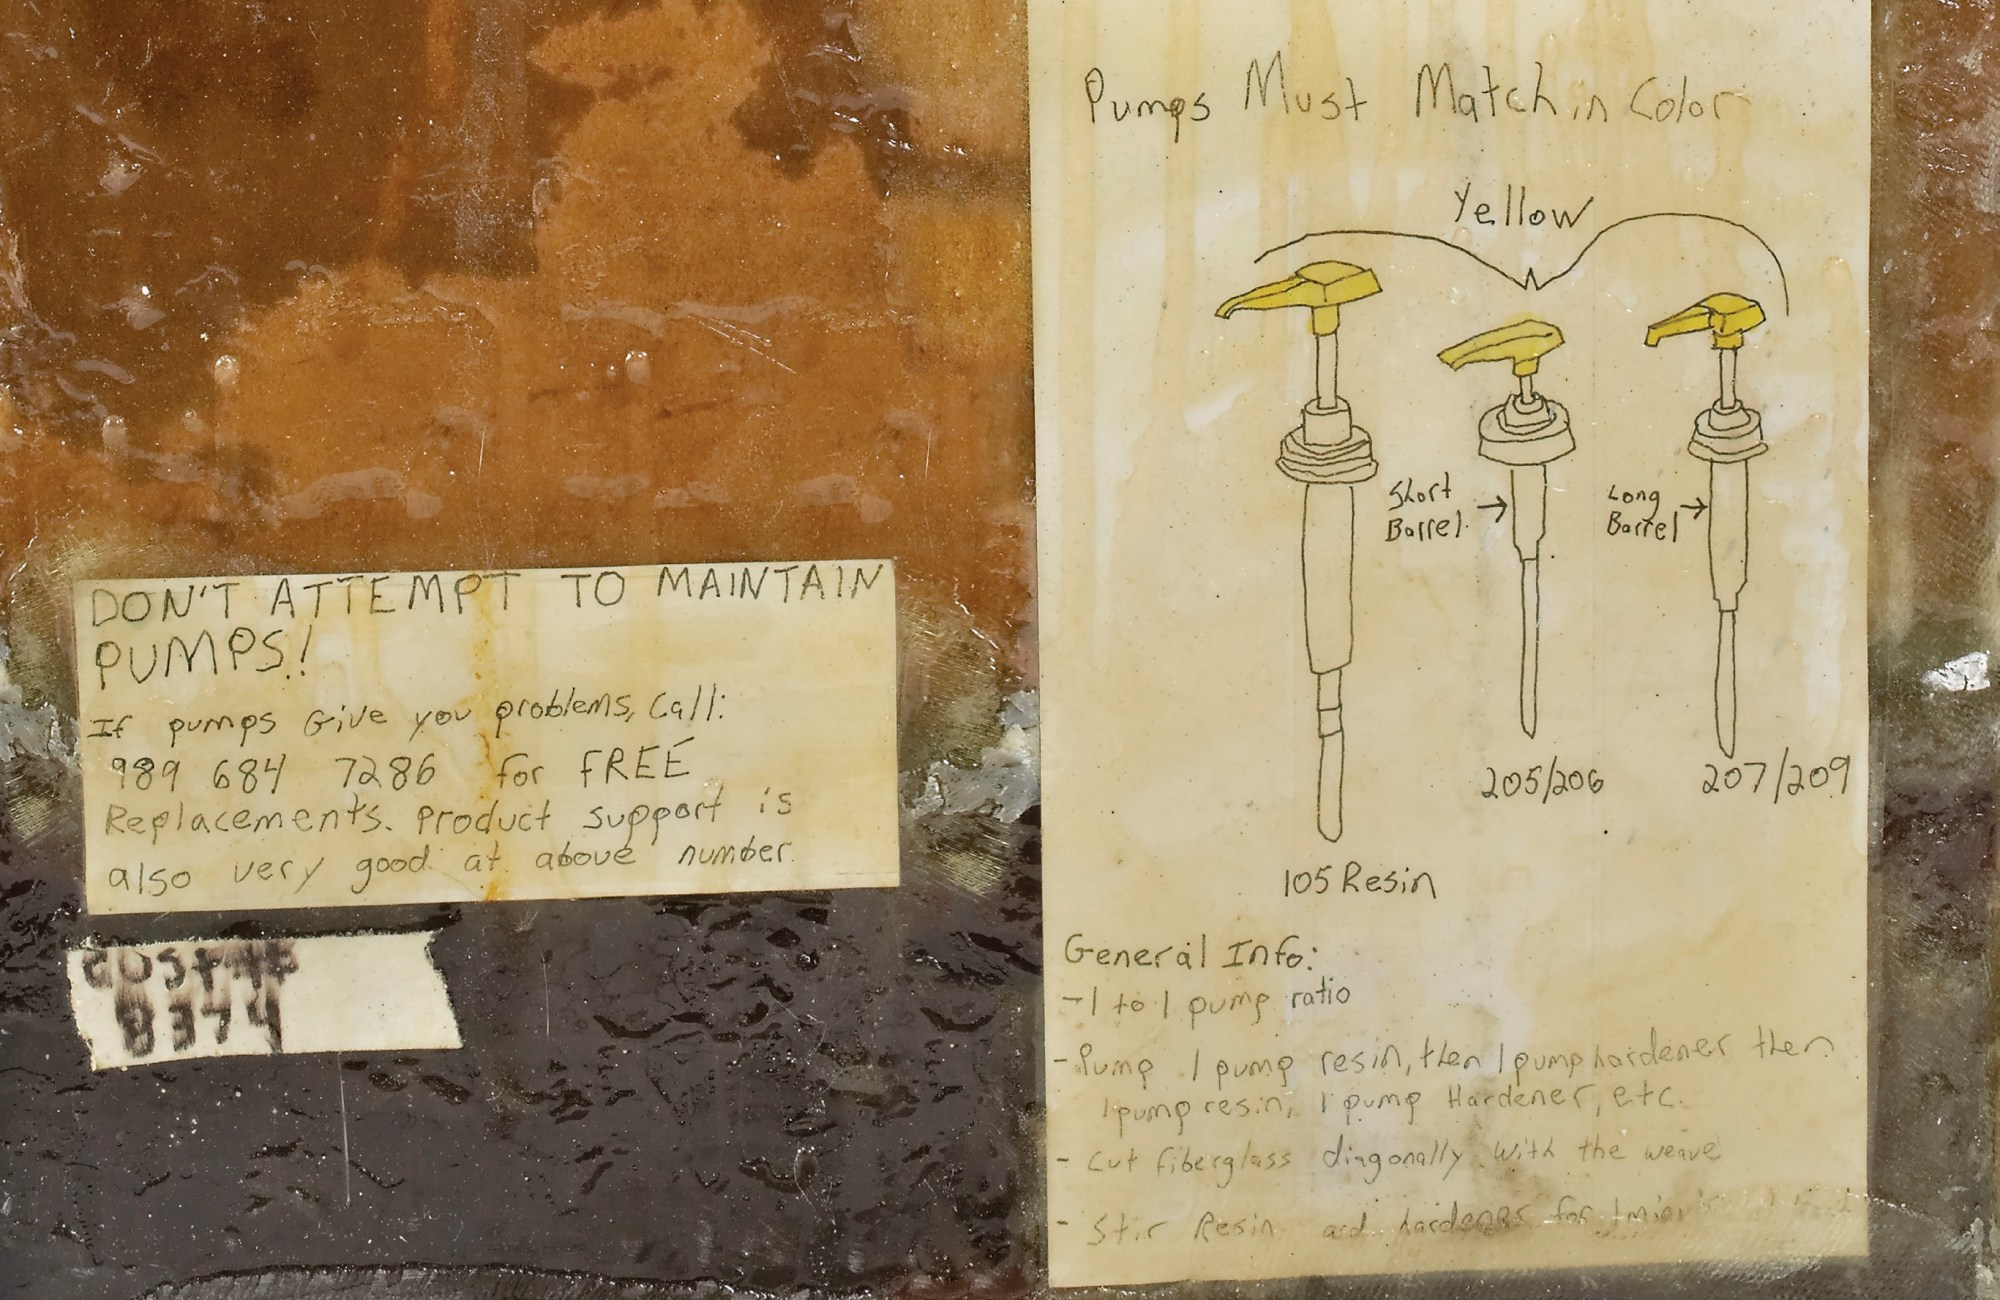 DON'T ATTEMPT TO MAINTAIN
PUMPS!
If pumps Give you problems, Call:
989 684 7286 for FREE
Replacements. Product support is
also very good at above number.
8374
Pumps Must Match in Color
Yellow
Short
Barrel
Long
Barrel
205/206
207/209
105 Resin
General Info:
-1 to 1 pump ratio
-Pump 1 pump resin, then 1 pump hardener then
1 pump resin, 1 pump Hardener, etc.
- Cut fiberglass diagonally with the weave
- Stir Resin and hardener for 1 min